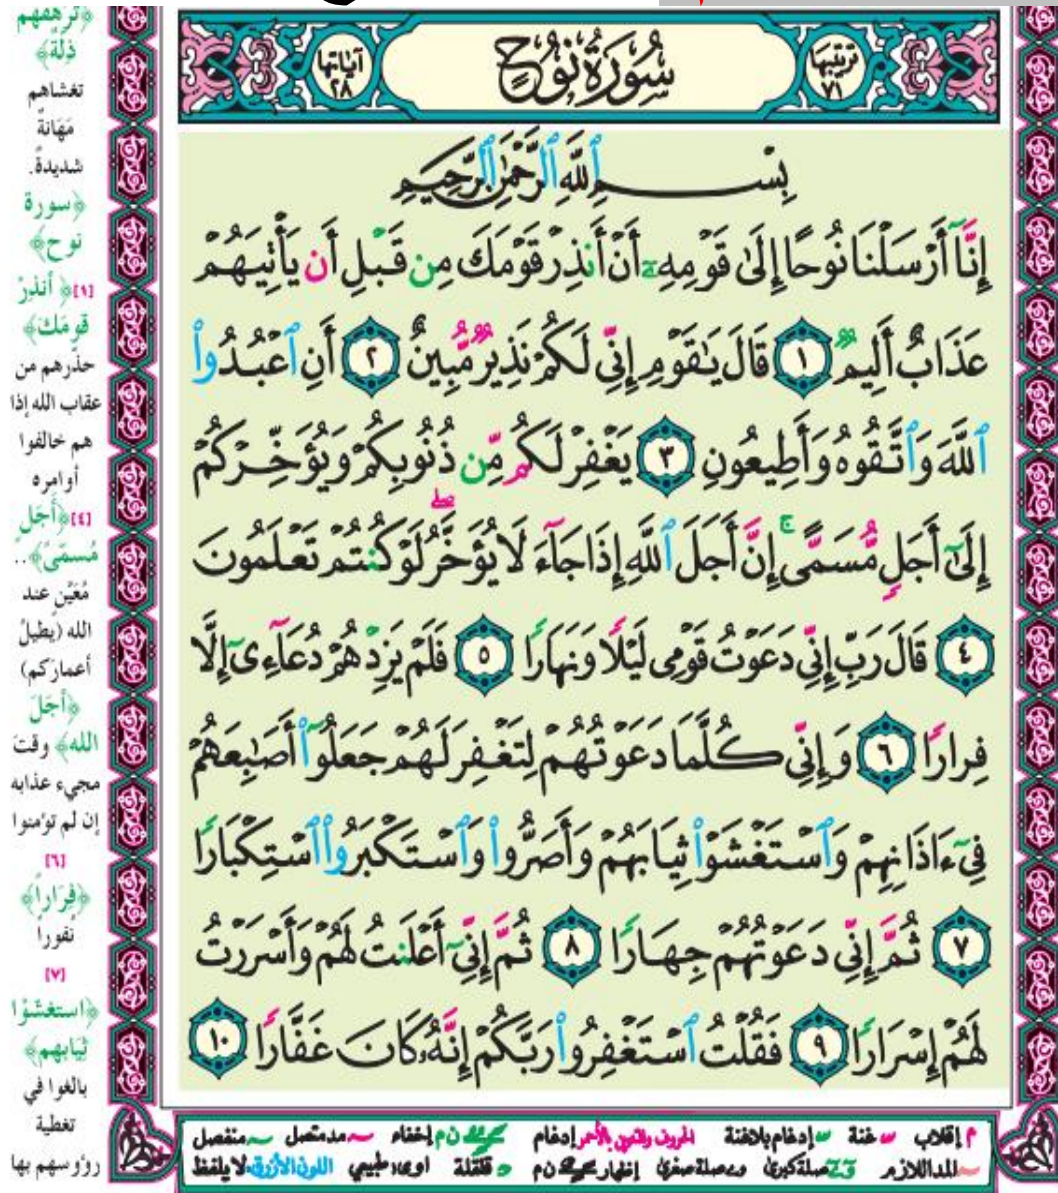 ترتيبها ٧١
سُورَةُ نُوحٍ
آياتها ٢٨
بِسْمِ ٱللَّهِ ٱلرَّحْمَٰنِ ٱلرَّحِيمِ
إِنَّآ أَرْسَلْنَا نُوحًا إِلَىٰ قَوْمِهِۦٓ أَنْ أَنذِرْ قَوْمَكَ مِن قَبْلِ أَن يَأْتِيَهُمْ
عَذَابٌ أَلِيمٌ ١ قَالَ يَٰقَوْمِ إِنِّي لَكُمْ نَذِيرٌ مُّبِينٌ ٢ أَنِ ٱعْبُدُوا۟
ٱللَّهَ وَٱتَّقُوهُ وَأَطِيعُونِ ٣ يَغْفِرْ لَكُم مِّن ذُنُوبِكُمْ وَيُؤَخِّرْكُمْ
إِلَىٰٓ أَجَلٍ مُّسَمًّى ۚ إِنَّ أَجَلَ ٱللَّهِ إِذَا جَآءَ لَا يُؤَخَّرُ ۖ لَوْ كُنتُمْ تَعْلَمُونَ
٤ قَالَ رَبِّ إِنِّي دَعَوْتُ قَوْمِي لَيْلًا وَنَهَارًا ٥ فَلَمْ يَزِدْهُمْ دُعَآءِىٓ إِلَّا
فِرَارًا ٦ وَإِنِّي كُلَّمَا دَعَوْتُهُمْ لِتَغْفِرَ لَهُمْ جَعَلُوٓا۟ أَصَٰبِعَهُمْ
فِيٓ ءَاذَانِهِمْ وَٱسْتَغْشَوْا۟ ثِيَابَهُمْ وَأَصَرُّوا۟ وَٱسْتَكْبَرُوا۟ ٱسْتِكْبَارًا
٧ ثُمَّ إِنِّي دَعَوْتُهُمْ جِهَارًا ٨ ثُمَّ إِنِّيٓ أَعْلَنتُ لَهُمْ وَأَسْرَرْتُ
لَهُمْ إِسْرَارًا ٩ فَقُلْتُ ٱسْتَغْفِرُوا۟ رَبَّكُمْ إِنَّهُۥ كَانَ غَفَّارًا ١٠
﴿تَرهَقهم
ذِلَّة﴾
تغشاهم
مَهَانةٌ
شديدةٌ.
﴿سورة
نوح﴾
[١]﴿أنذِرْ
قومَكَ﴾
حذّرهم من
عقاب الله إذا
هم خالفوا
أوامره
[٤]﴿أَجَلٍ
مُسمّىً﴾..
مُعَيَّنٍ عند
الله (يطيلُ
أعماركم)
﴿أجَلَ
الله﴾ وقتَ
مجيء عذابه
إن لم تؤمنوا
[٦]
﴿فِرَاراً﴾
نفوراً
[٧]
﴿استغشَوْا
ثِيَابهم﴾
بالغوا في
تغطية
رؤوسهم بها
م إقلاب غنة إدغام بلاغنة الحروف والتنوين بالأحمر إدغام ن م إخفاء مد متصل منفصل
المد اللازم صلة كبرى صلة صغرى إظهار ن م قلقلة اوي مد طبيعي اللون الأزرق لا يلفظ